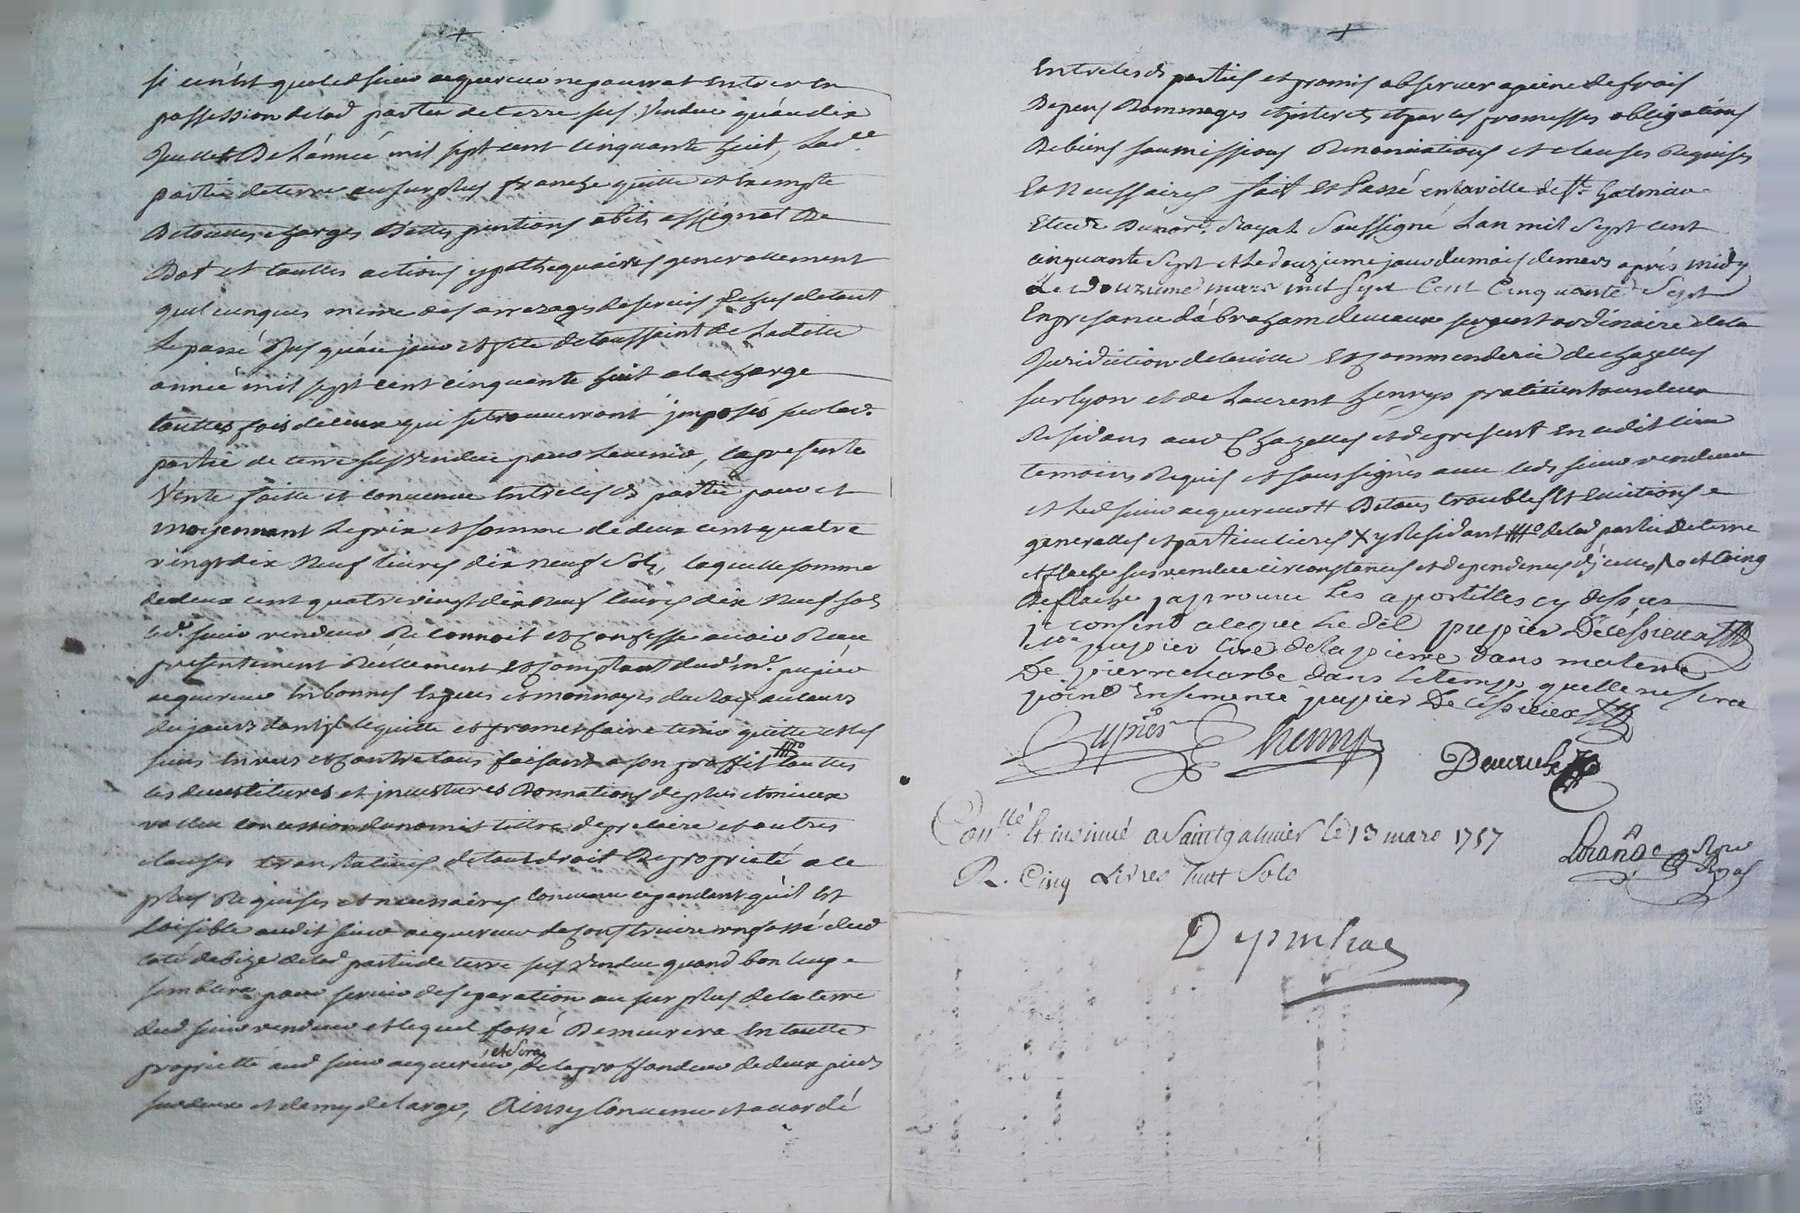 si ce n'est que led sieur acquereur ne pourrat entrer en
possession de lad partie de terre sus vendue qu'au dix
Juillet de L'année mil sept cent cinquante huit, Lad.e
partie de terre au surplus franche quitte et exempte
De touttes charges Dettes pentions obits assignat De
Dot et touttes actions ypothequaires generallement
quelcunques meme des arrerages de servis echus de tout
Le passé Jus qu'au jour et fete de toussaint de Laditte
année mil sept cent cinquante huit a la charge
touttes fois de ceux qui se trouveront jmposés sur lad.
partie de terre sus vendue pour Lavenir, la presente
Vente faitte et convenue entre lesds partie pour et
moyennant Le prix et somme de deux cent quatre
vingt dix Neuf livres dix neuf sols, laquelle somme
de deux cent quatre vingt dix Neuf livres dix Neuf sols
led. sieur vendeur Reconnoit et Confesse avoir Reçu
presentement Réellement et Comptant dud. sr. pupier
acquereur en bonnes Especes et monnoyes du Roy au cours
du jour dont il le quitte et promet faire tenir quitte et les
siens envers et contre tous faisant a son proffit touttes
les devestitures et jnvestitures Donnations de plus et mieux
vallue concession du nom et tittre de preclaire et autres
clauses translatives de tout droit De proprieté a ce
plus Requises et necessaires convenu cependant qu'il Est
Loisible audit sieur acquereur de Construire un fossé du
coté de bize de lad partie de terre sus Vendue quand bon luy
semblera pour servir de separation au sur plus de la terre
dud sieur vendeur et lequel fossé Demeurera En toutte
et sera
proprietté aud sieur acquereur, de la proffondeur de deux pieds
sur deux et demy de large, Ainsy Convenu et accordé
Entre lesds parties et promis observer a peine de frais
Depens Dommages et interets et par les promesses obligations
De biens soumissions Renonciations et clauses Requises
Et Necessaires fait Et Passé en la ville de St. Galmier
Etude Du nore. Royal Soussigné Lan mil Sept cent
cinquante sept et Le douzieme jour du mois de mars après midy
Le douzieme mars mil sept Cent Cinquante Sept
En presance d'abraham devaux sergent ordinaire de la
Juridiction de la ville Et Commenderie de chazelles
sur lyon et de Laurent henrys praticien tous deux
Residans aud Chazelles et de present En cedit lieu
temoins Requis et soussignés avec leds sieur vendeur
et Led sieur acquereur De tous troubles et Evictions
generalles et particulieres X y Residant de lad partie De terre
et flache sus vendue circonstances et dependences
De flache japrouve Les apostilles cy dessus
je consent a ce que Le dit pupier Decessieux
pupier tire de la pierre dans ma terre
De pierre charbe dans le temps quelle ne sera
point Ensemencé pupier Decessieux
Pupier henrys
Devaux
Conllé Et insinué a Saint galmier le 13 mars 1757
R. Cinq Livres huit Sols